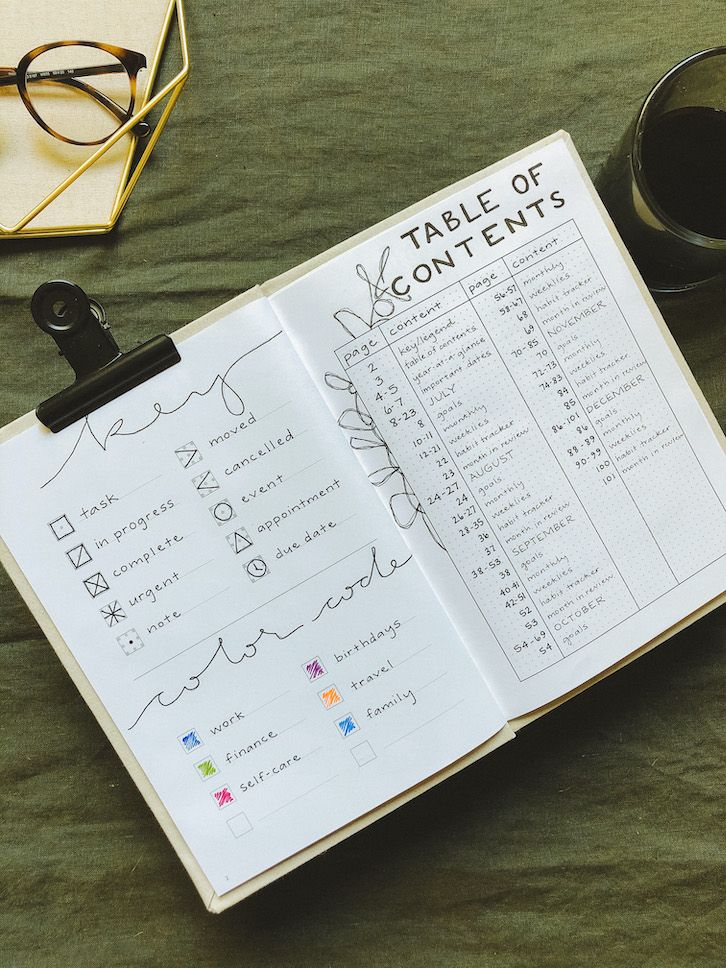 key
task
in progress
complete
urgent
note
moved
cancelled
event
appointment
due date
color code
work
finance
self-care
birthdays
travel
family
TABLE OF
CONTENTS
page content
2 key/legend
3 table of contents
4-5 year-at-a-glance
6-7 important dates
8-23 JULY
8 goals
10-11 monthly
12-21 weeklies
22 habit tracker
23 month in review
24-27 AUGUST
24 goals
26-27 monthly
28-35 weeklies
36 habit tracker
37 month in review
38-53 SEPTEMBER
38 goals
40-41 monthly
42-51 weeklies
52 habit tracker
53 month in review
54-69 OCTOBER
54 goals
page content
56-57 monthly
58-67 weeklies
68 habit tracker
69 month in review
70-85 NOVEMBER
70 goals
72-73 monthly
74-83 weeklies
84 habit tracker
85 month in review
86-101 DECEMBER
86 goals
88-89 monthly
90-99 weeklies
100 habit tracker
101 month in review